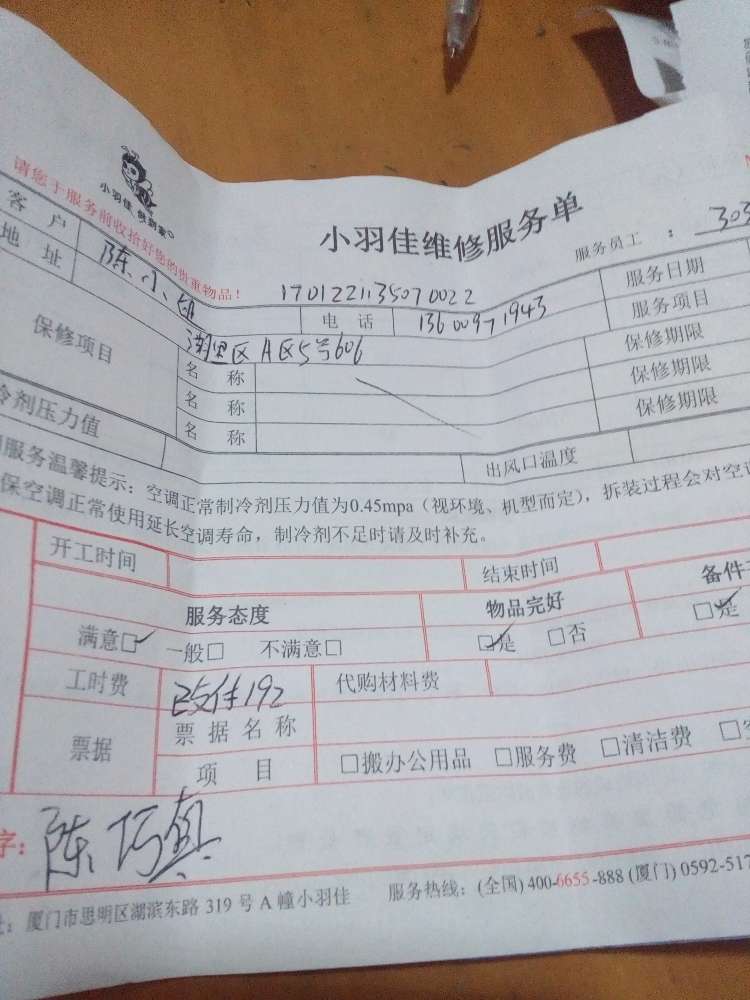 小羽佳 做到家
请您于服务前收拾好您的贵重物品!
小羽佳维修服务单
服务员工 : 303
1701221135070022
客 户 陈小姐 电 话 13600971943 服务日期
地 址 A区5号606 服务项目
保修项目 名 称 保修期限
名 称 保修期限
名 称 保修期限
冷剂压力值 出风口温度
服务温馨提示:空调正常制冷剂压力值为0.45mpa(视环境、机型而定),拆装过程会对空
保空调正常使用延长空调寿命,制冷剂不足时请及时补充。
开工时间 结束时间
服务态度 物品完好 备件
满意□ 一般□ 不满意□ □是 □否 □是
工时费 已支付192 代购材料费
票据 票 据 名 称
项 目 □搬办公用品 □服务费 □清洁费
字: 陈巧真
址: 厦门市思明区湖滨东路 319 号 A 幢小羽佳 服务热线: (全国) 400-6655-888 (厦门) 0592-517